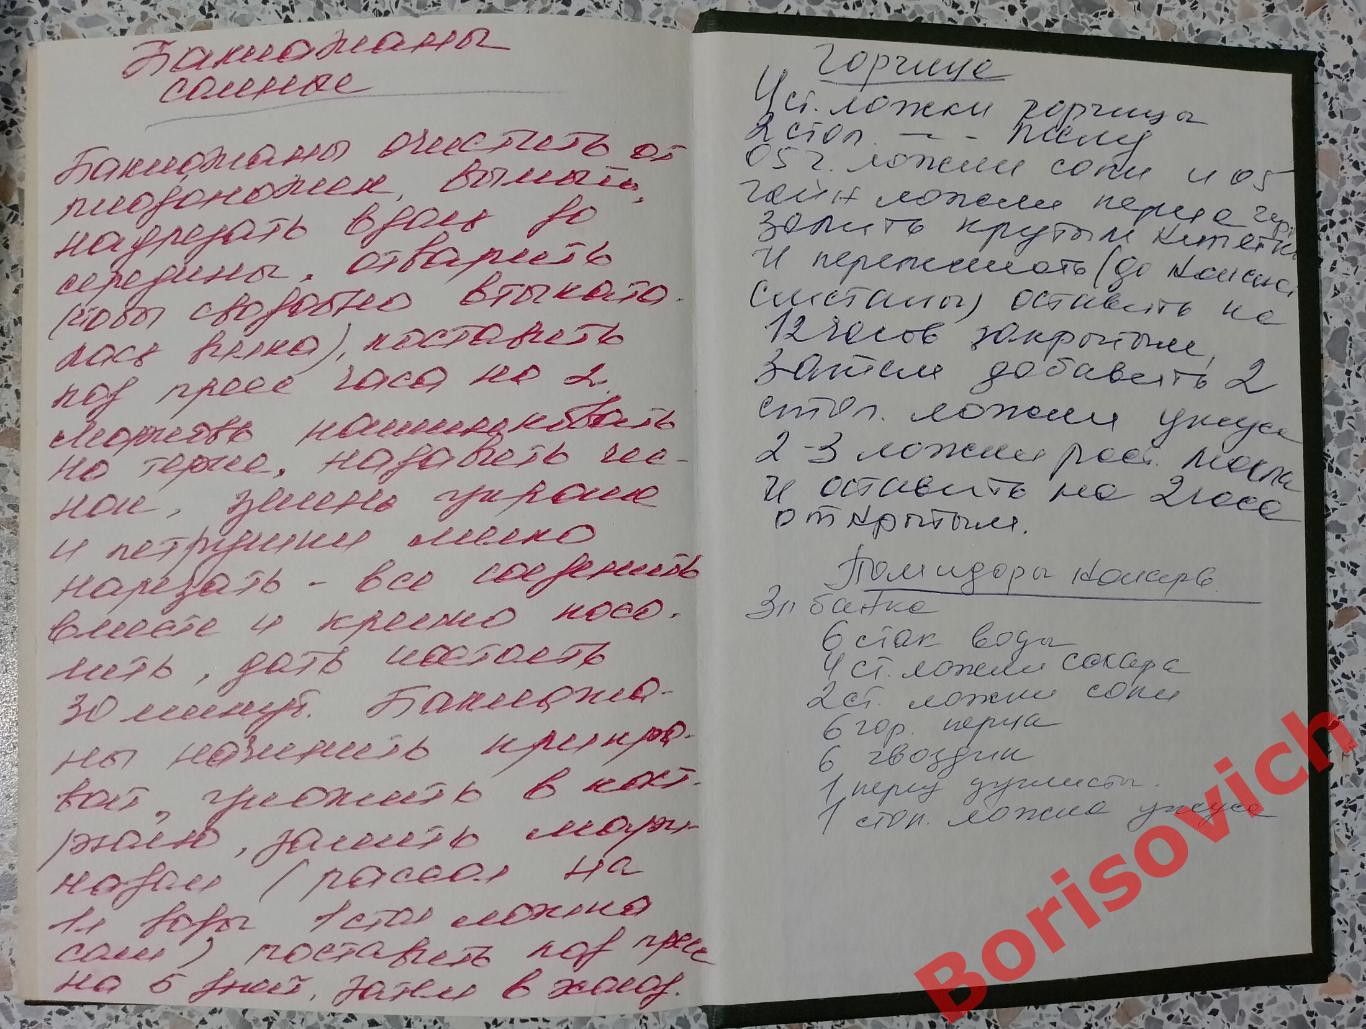 Баклажаны
соленые
Баклажаны очистить от
плодоножек, вымыть,
надрезать вдоль до
середины, отварить
(чтобы свободно втыкала-
лась вилка), поставить
под пресс часа на 2.
Морковь нашинковать
на терке, надавить чес-
нок, зелень укропа
и петрушки мелко
нарезать - все соединить
вместе и крепко посо-
лить, дать постоять
30 минут. Баклажа-
ны начинить приправ-
вой, уложить в каст-
рюлю, залить мари-
надом (рассол на
1л воды 1 стол ложка
соли) поставить под пресс
на 5 дней, затем в холод.
Горчица
4 ст. ложки горчицы
2 стол. -"-
05 ч. ложки соли и 05
чайн ложки перца черн
залить крутым кипятком
и перемешать (до консист
сметаны) оставить на
12 часов закрытым,
Затем добавить 2
стол. ложки уксуса
2-3 ложки раст. масла
и оставить на 2 часа
открытым.
Помидоры консерв.
3л банка
6 стак воды
4 ст. ложки сахара
2 ст. ложки соли
6 гор. перца
6 гвоздик
1 перец душисты.
1 стол. ложка уксуса
Borisovich